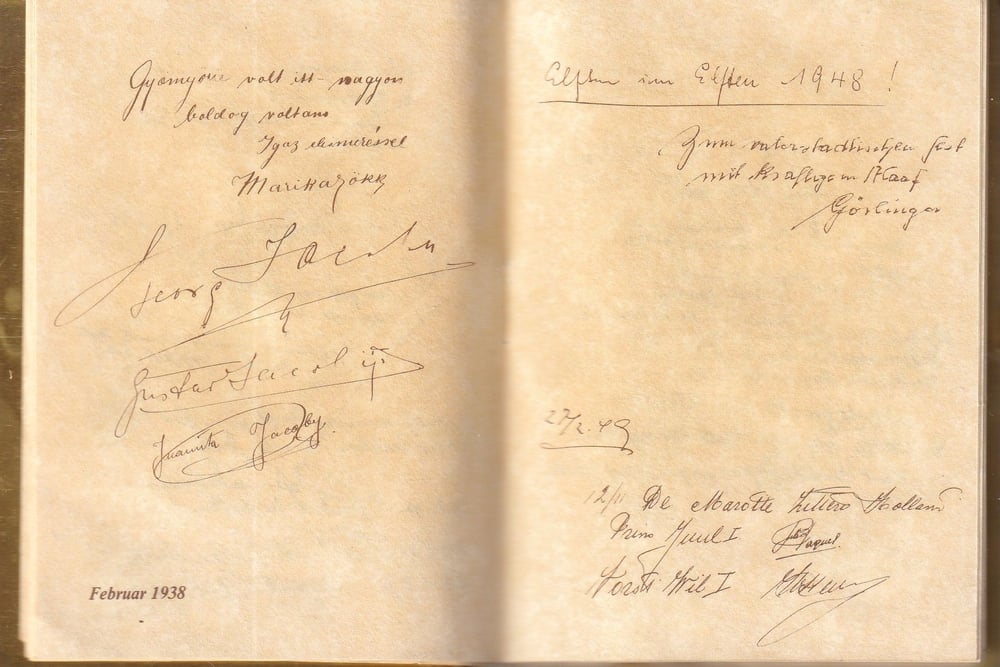 Gyönyörü volt itt - nagyon
boldog voltam
Igaz elismeréssel
Marika Rökk
Georg Jacoby
Gustav Jacoby
Juanita Jacoby
Februar 1938
Elften im Elften 1948!
Zum vaterstädtischen Fest
mit kräftigem Alaaf
Görlinger
27/2.49
12/11 De Marotte Sittard Holland
Prins Juul I
Vorst Wil I